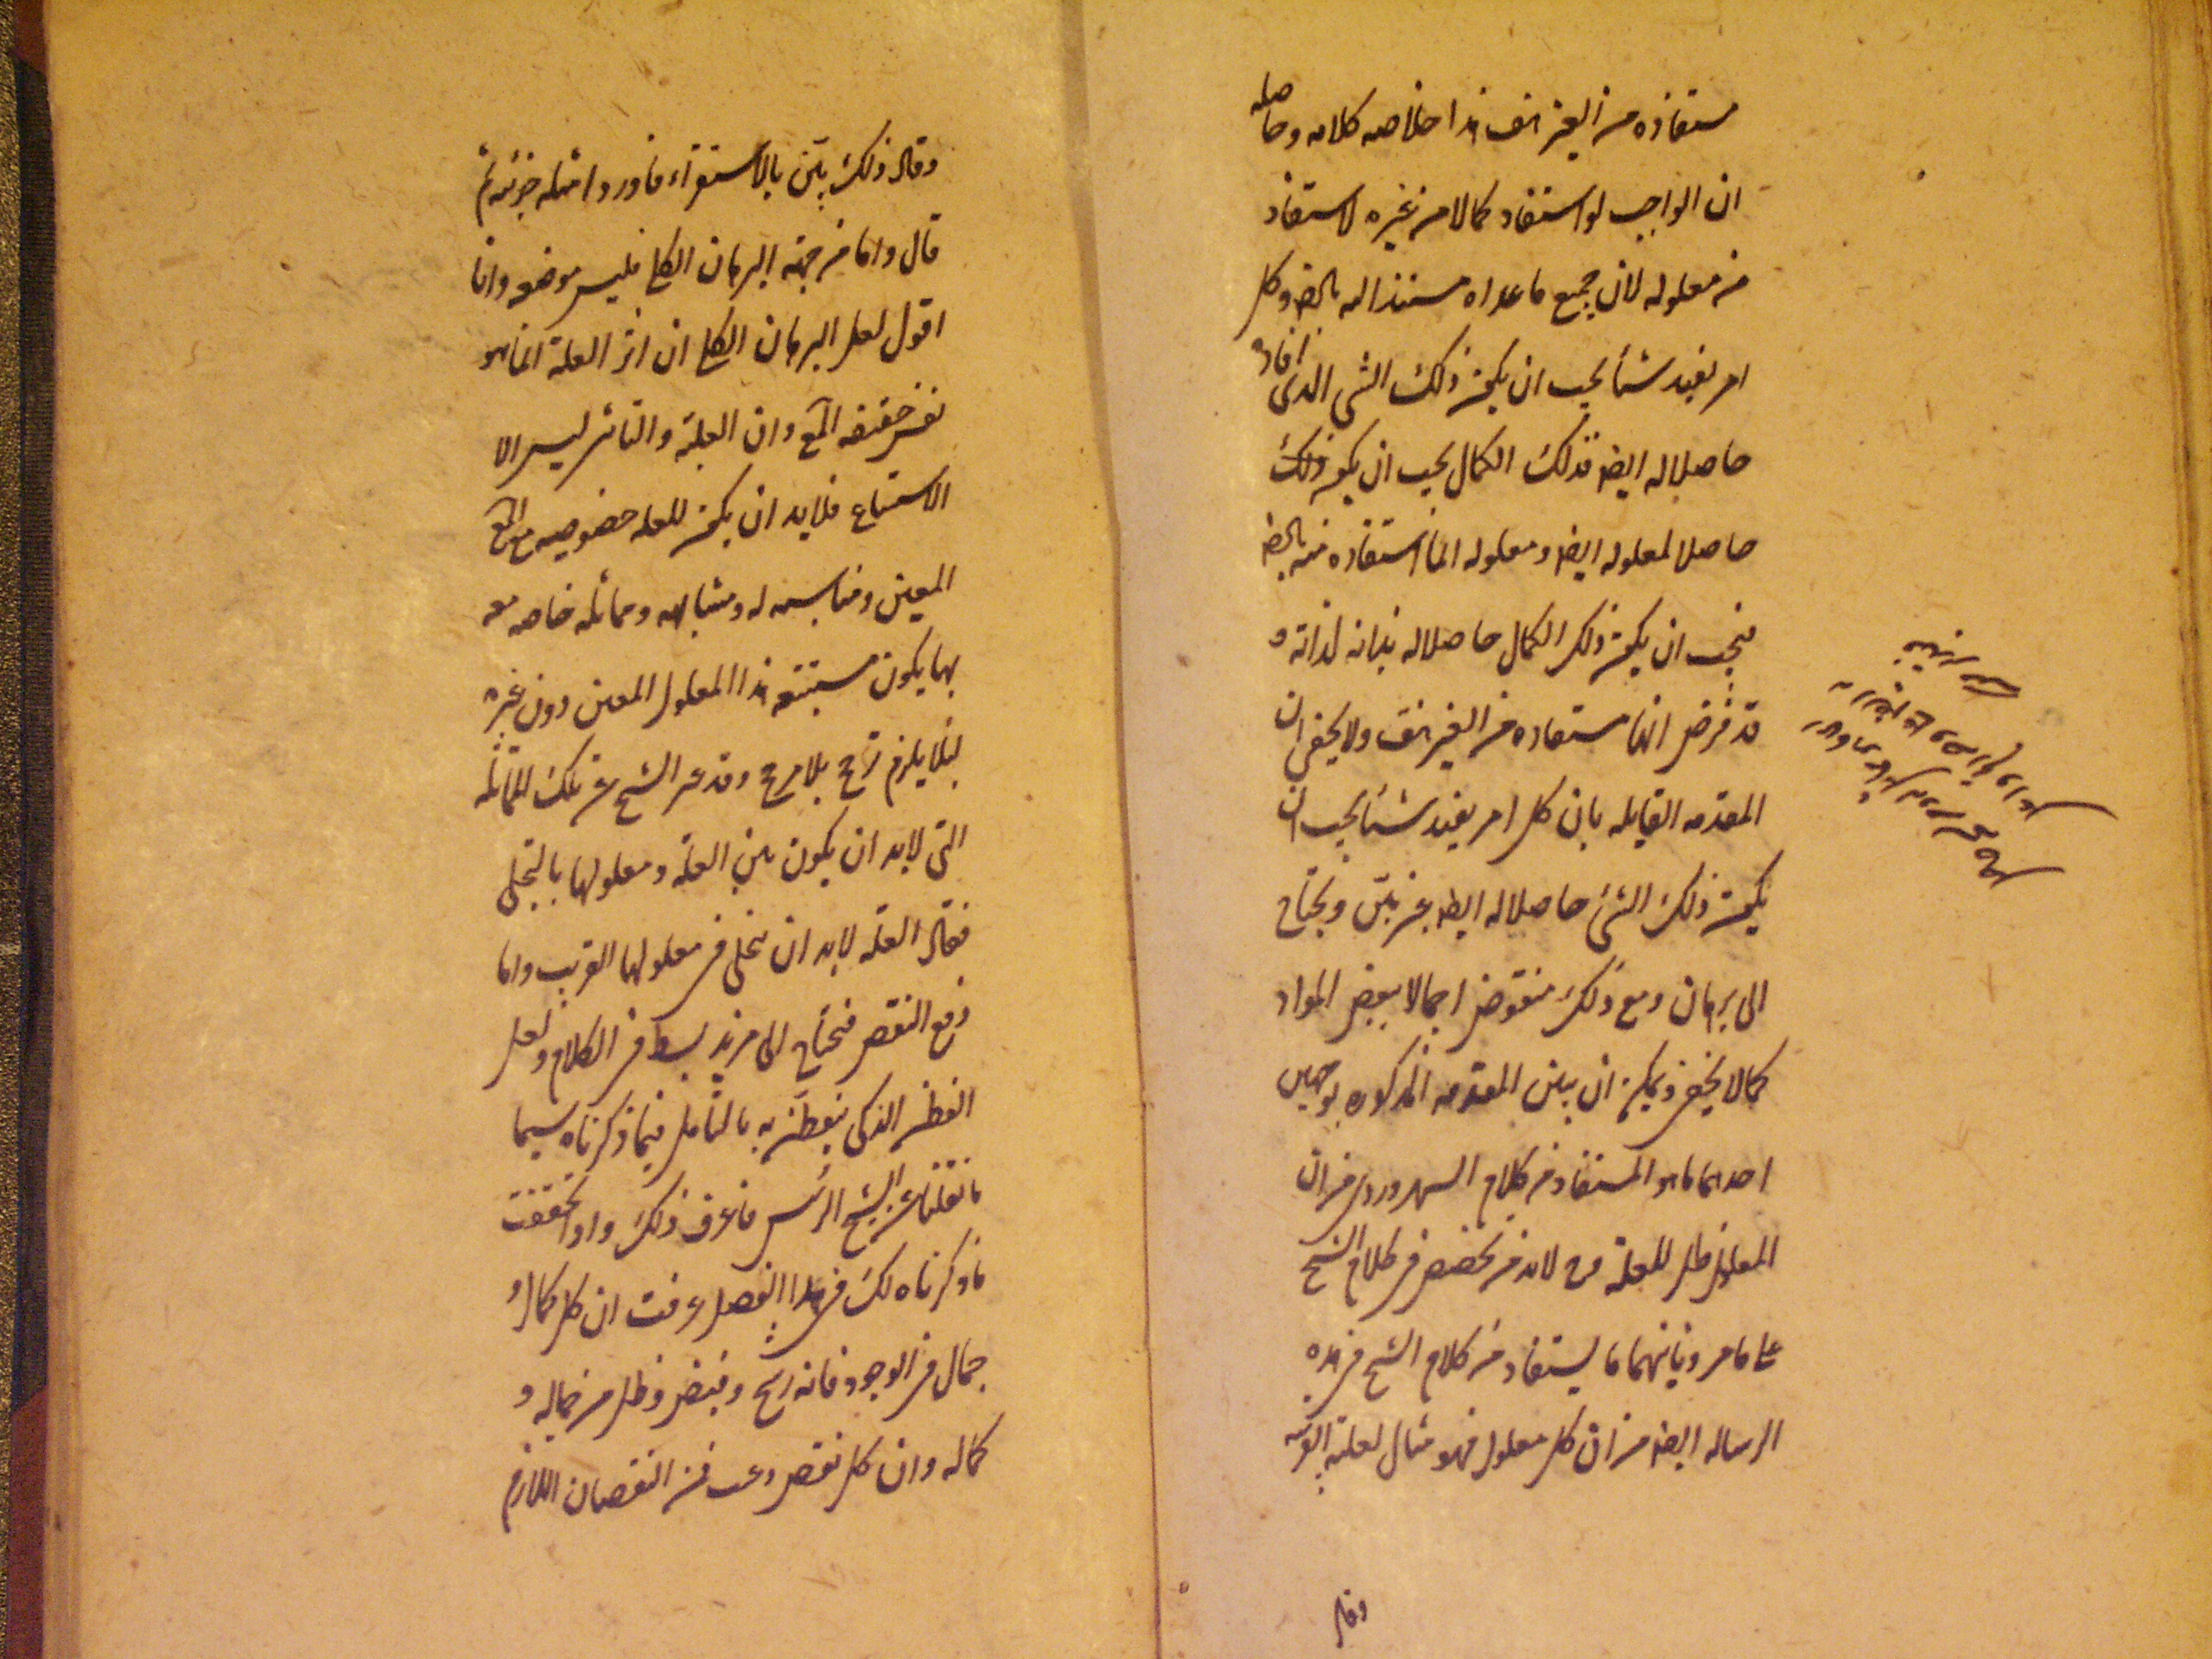 مستفاده من الغير هف هذا خلاصه كلامه وحاصله
ان الواجب لو استفاد كمالا من غيره لاستفاد
من معلوله لان جميع ما عداه مستند اليه بالاخره وكل
امر يفيد شيأ يجب ان يكون ذلك الشى الذى افاده
حاصلا له ايضا فذلك الكمال يجب ان يكون ذلك
حاصلا لمعلوله ايضا ومعلوله انما استفاده منه
فيجب ان يكون ذلك الكمال حاصلا له بذاته لذاته و
قد فرض انها مستفاده من الغير هف ولا يخفى ان
المقدمه القايله بان كل امر يفيد شيأ يجب ان
يكون ذلك الشئ حاصلا له ايضا غير بين ويحتاج
الى برهان ومع ذلك منقوض اجمالا ببعض المواد
كما لا يخفى ويمكن ان يبين المقدمه المذكوره بوجهين
احدهما ما هو المستفاد من كلام السهروردى من ان
المعلول ظل للعلة فح لابد من تخصيص فى كلام الشيخ
على ما مر وثانيهما ما يستفاد من كلام الشيخ فى هذه
الرساله ايضا من ان كل معلول فهو مثال لعلته القريبه
وقال
وقال ذلك بين بالاستقراء فاورد امثله جزئيه ثم
قال واما من جهة البرهان الكلى فليس موضعه وانا
اقول لعل البرهان الكلى ان اثر العلة انما هو
نفس حقيقه المع وان العلية والتاثير ليس الا
الاستتباع فلابد ان يكون للعله خصوصيه مع المع
المعين ومناسبه له ومشابهه ومماثله خاصه معه
بها يكون مستتبعه هذا المعلول المعين دون غيره
لئلا يلزم ترجح بلا مرجح وقد عبر الشيخ عن تلك المماثله
التى لابد ان يكون بين العلة ومعلولها بالتجلى
فقال العلة لابد ان تتجلى فى معلولها القريب واما
دفع النقض فيحتاج الى مزيد بسط فى الكلام ولعل
الفطن الذكى يتفطن به بالتامل فيما ذكرناه سيما
ما نقلناه عن الشيخ الرئيس فاعرف ذلك واذا تحققت
ما ذكرناه لك فى هذا الفصل عرفت ان كل كمال و
جمال فى الوجود فانه رشح وفيض وظل من جماله و
كماله وان كل نقص وعيب فمن النقصان اللازم